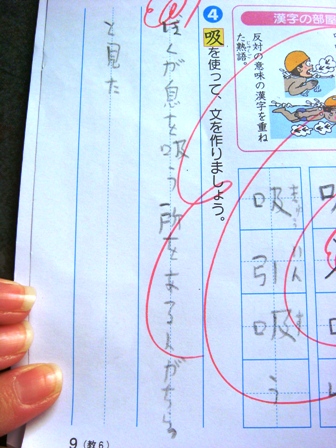 漢字の部屋
反対の意味の漢字を重ね
た熟語。
吸
引
吸
う
4 吸を使って、文を作りましょう。
ぼくが息を吸う所をある人がちらっ
と見た
9(教6)